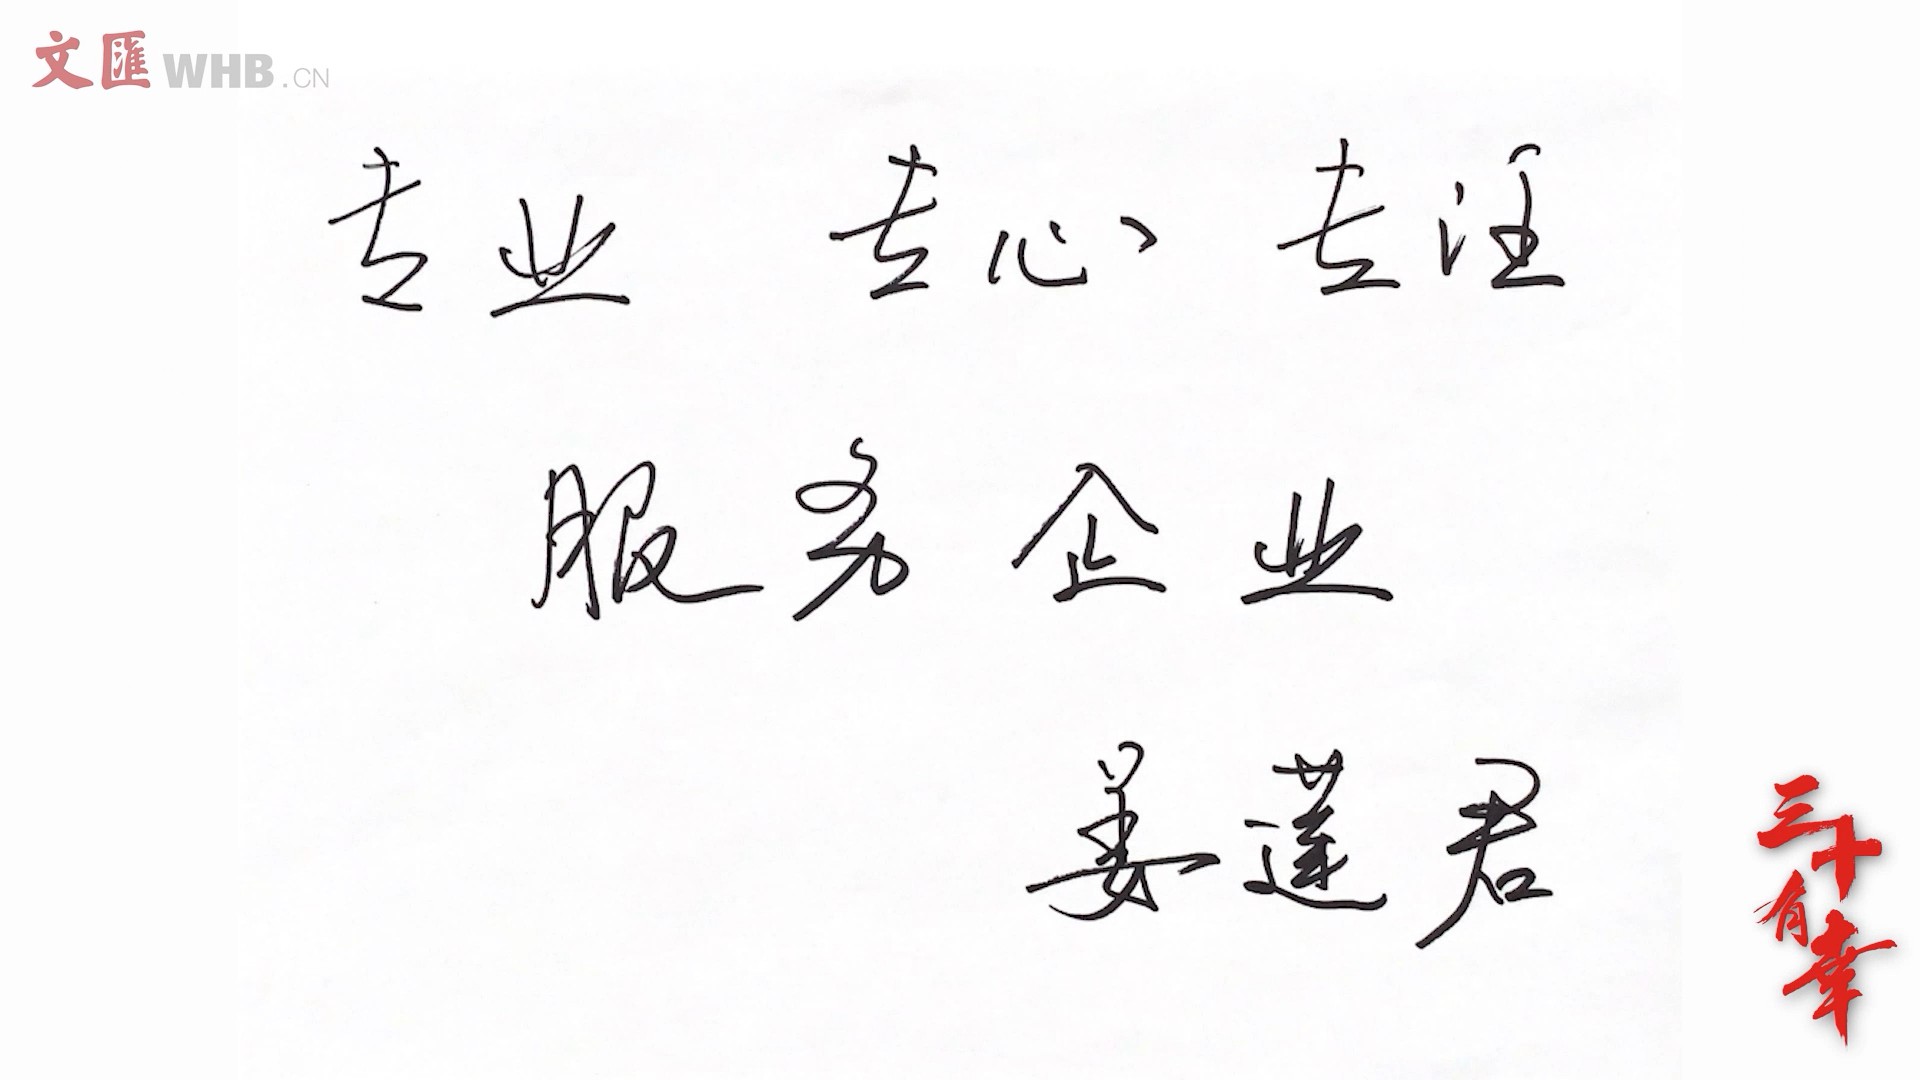 文匯 WHB.CN
专业 专心 专注
服务企业
姜莲君
三十有幸